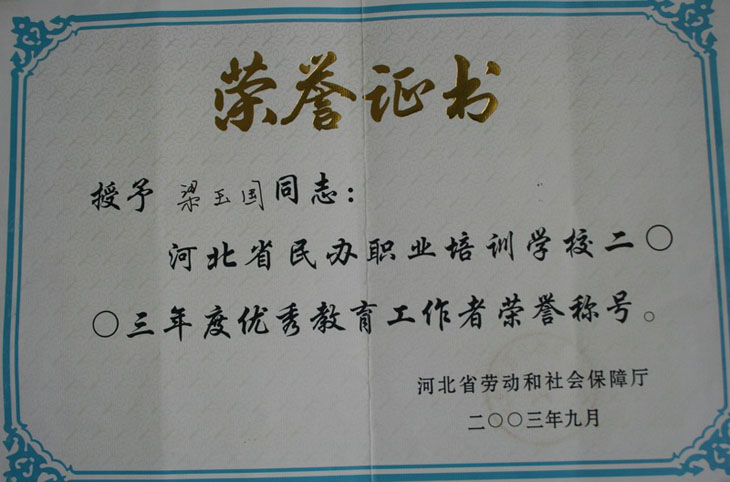 荣誉证书
授予 梁玉国同志：
河北省民办职业培训学校二〇
〇三年度优秀教育工作者荣誉称号。
河北省劳动和社会保障厅
二〇〇三年九月